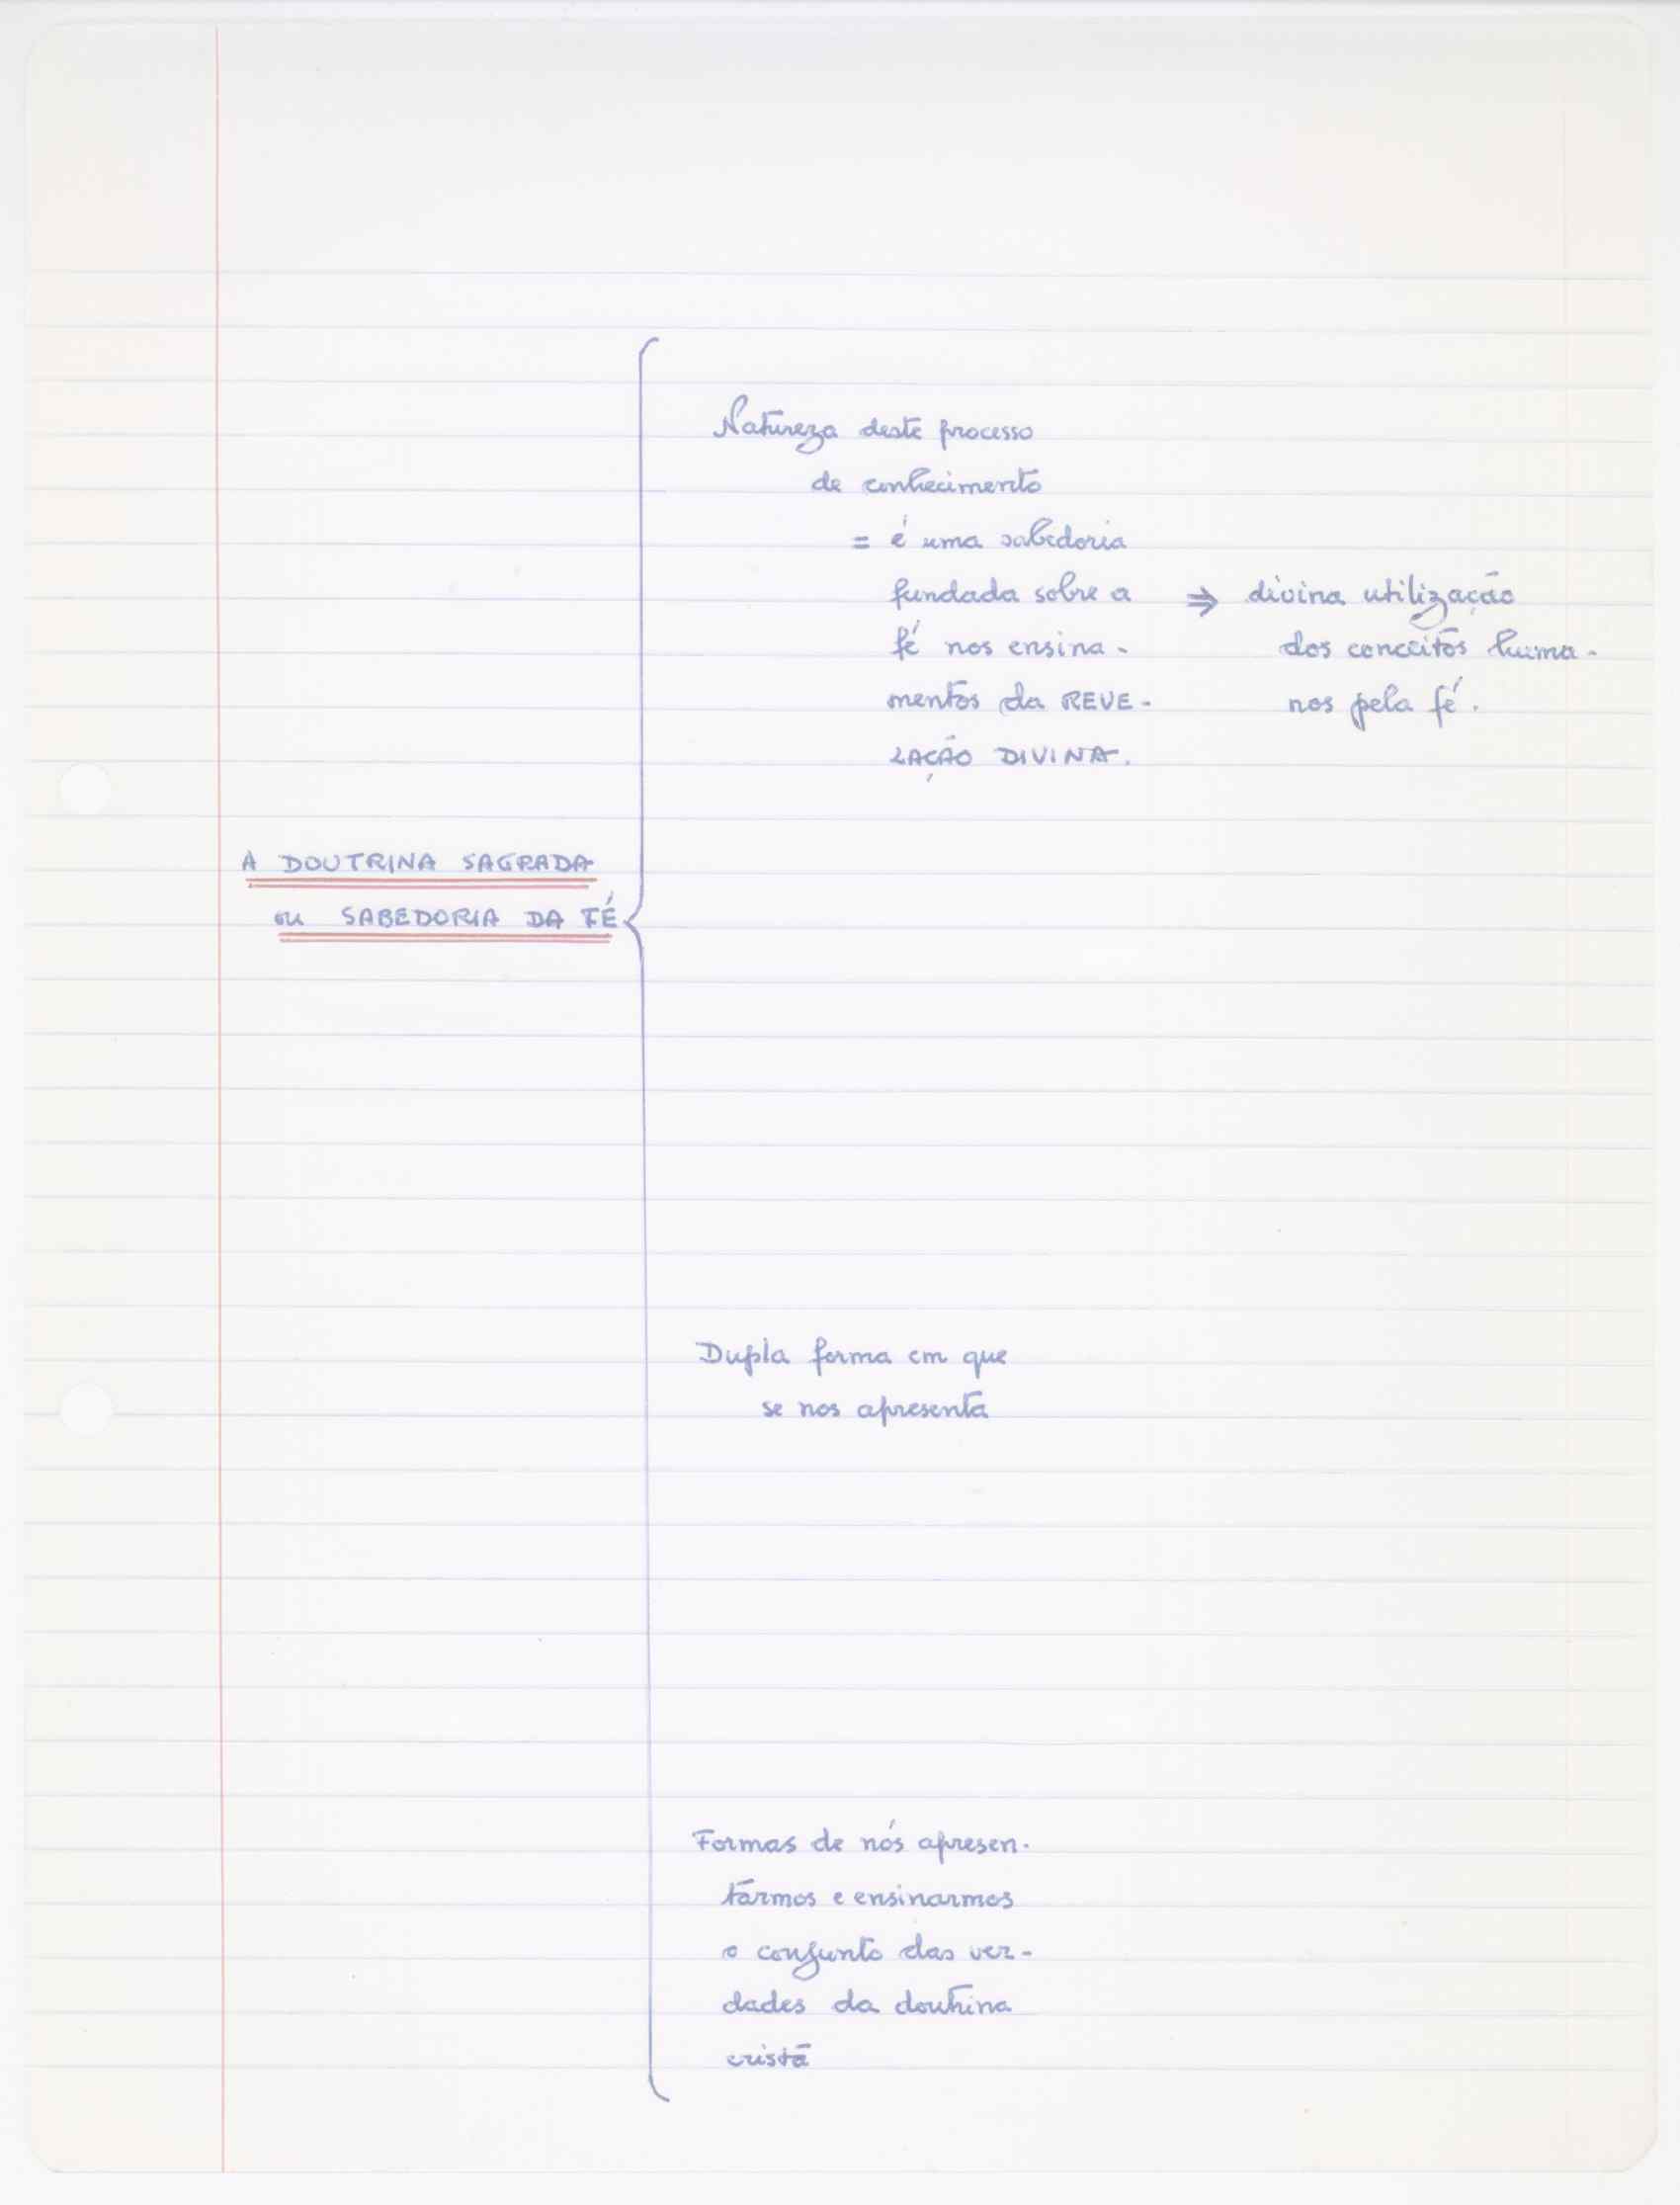 Natureza deste processo
de conhecimento
= é uma sabedoria
fundada sobre a ⇒ divina utilização
fé nos ensina- dos conceitos huma-
mentos da REVE- nos pela fé.
LAÇÃO DIVINA.
A DOUTRINA SAGRADA
ou SABEDORIA DA FÉ
Dupla forma em que
se nos apresenta
Formas de nós apresen-
tarmos e ensinarmos
o conjunto das ver-
dades da doutrina
cristã